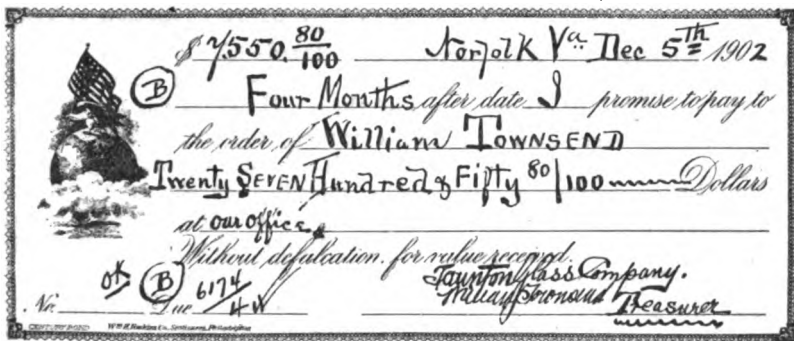 $ 7.550. 80/100 Norfolk Va Dec 5th 1902
B Four Months after date I promise to pay to
the order of William Townsend
Twenty Seven Hundred & Fifty 80/100 Dollars
at our office
Without defalcation, for value received.
OK B Taunton Glass Company.
No. Due 6174/ William Townsend Treasurer
CENTURY BOND Wm H. Hoskins Co., Stationers, Philadelphia